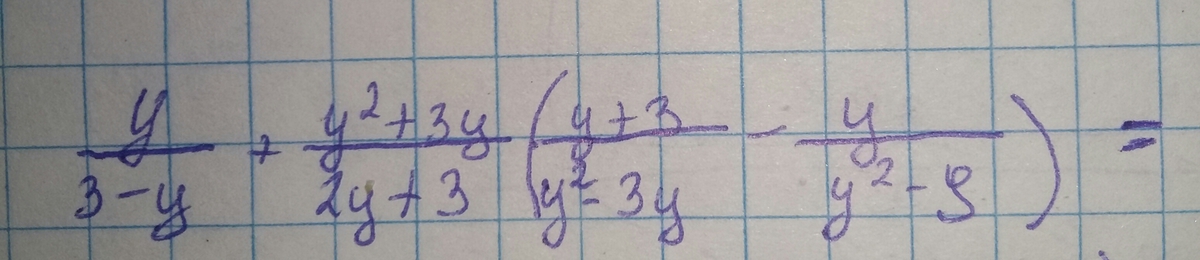 y/(3-y) + (y²+3y)/(2y+3) ((y+3)/(y²-3y) - y/(y²-9)) =